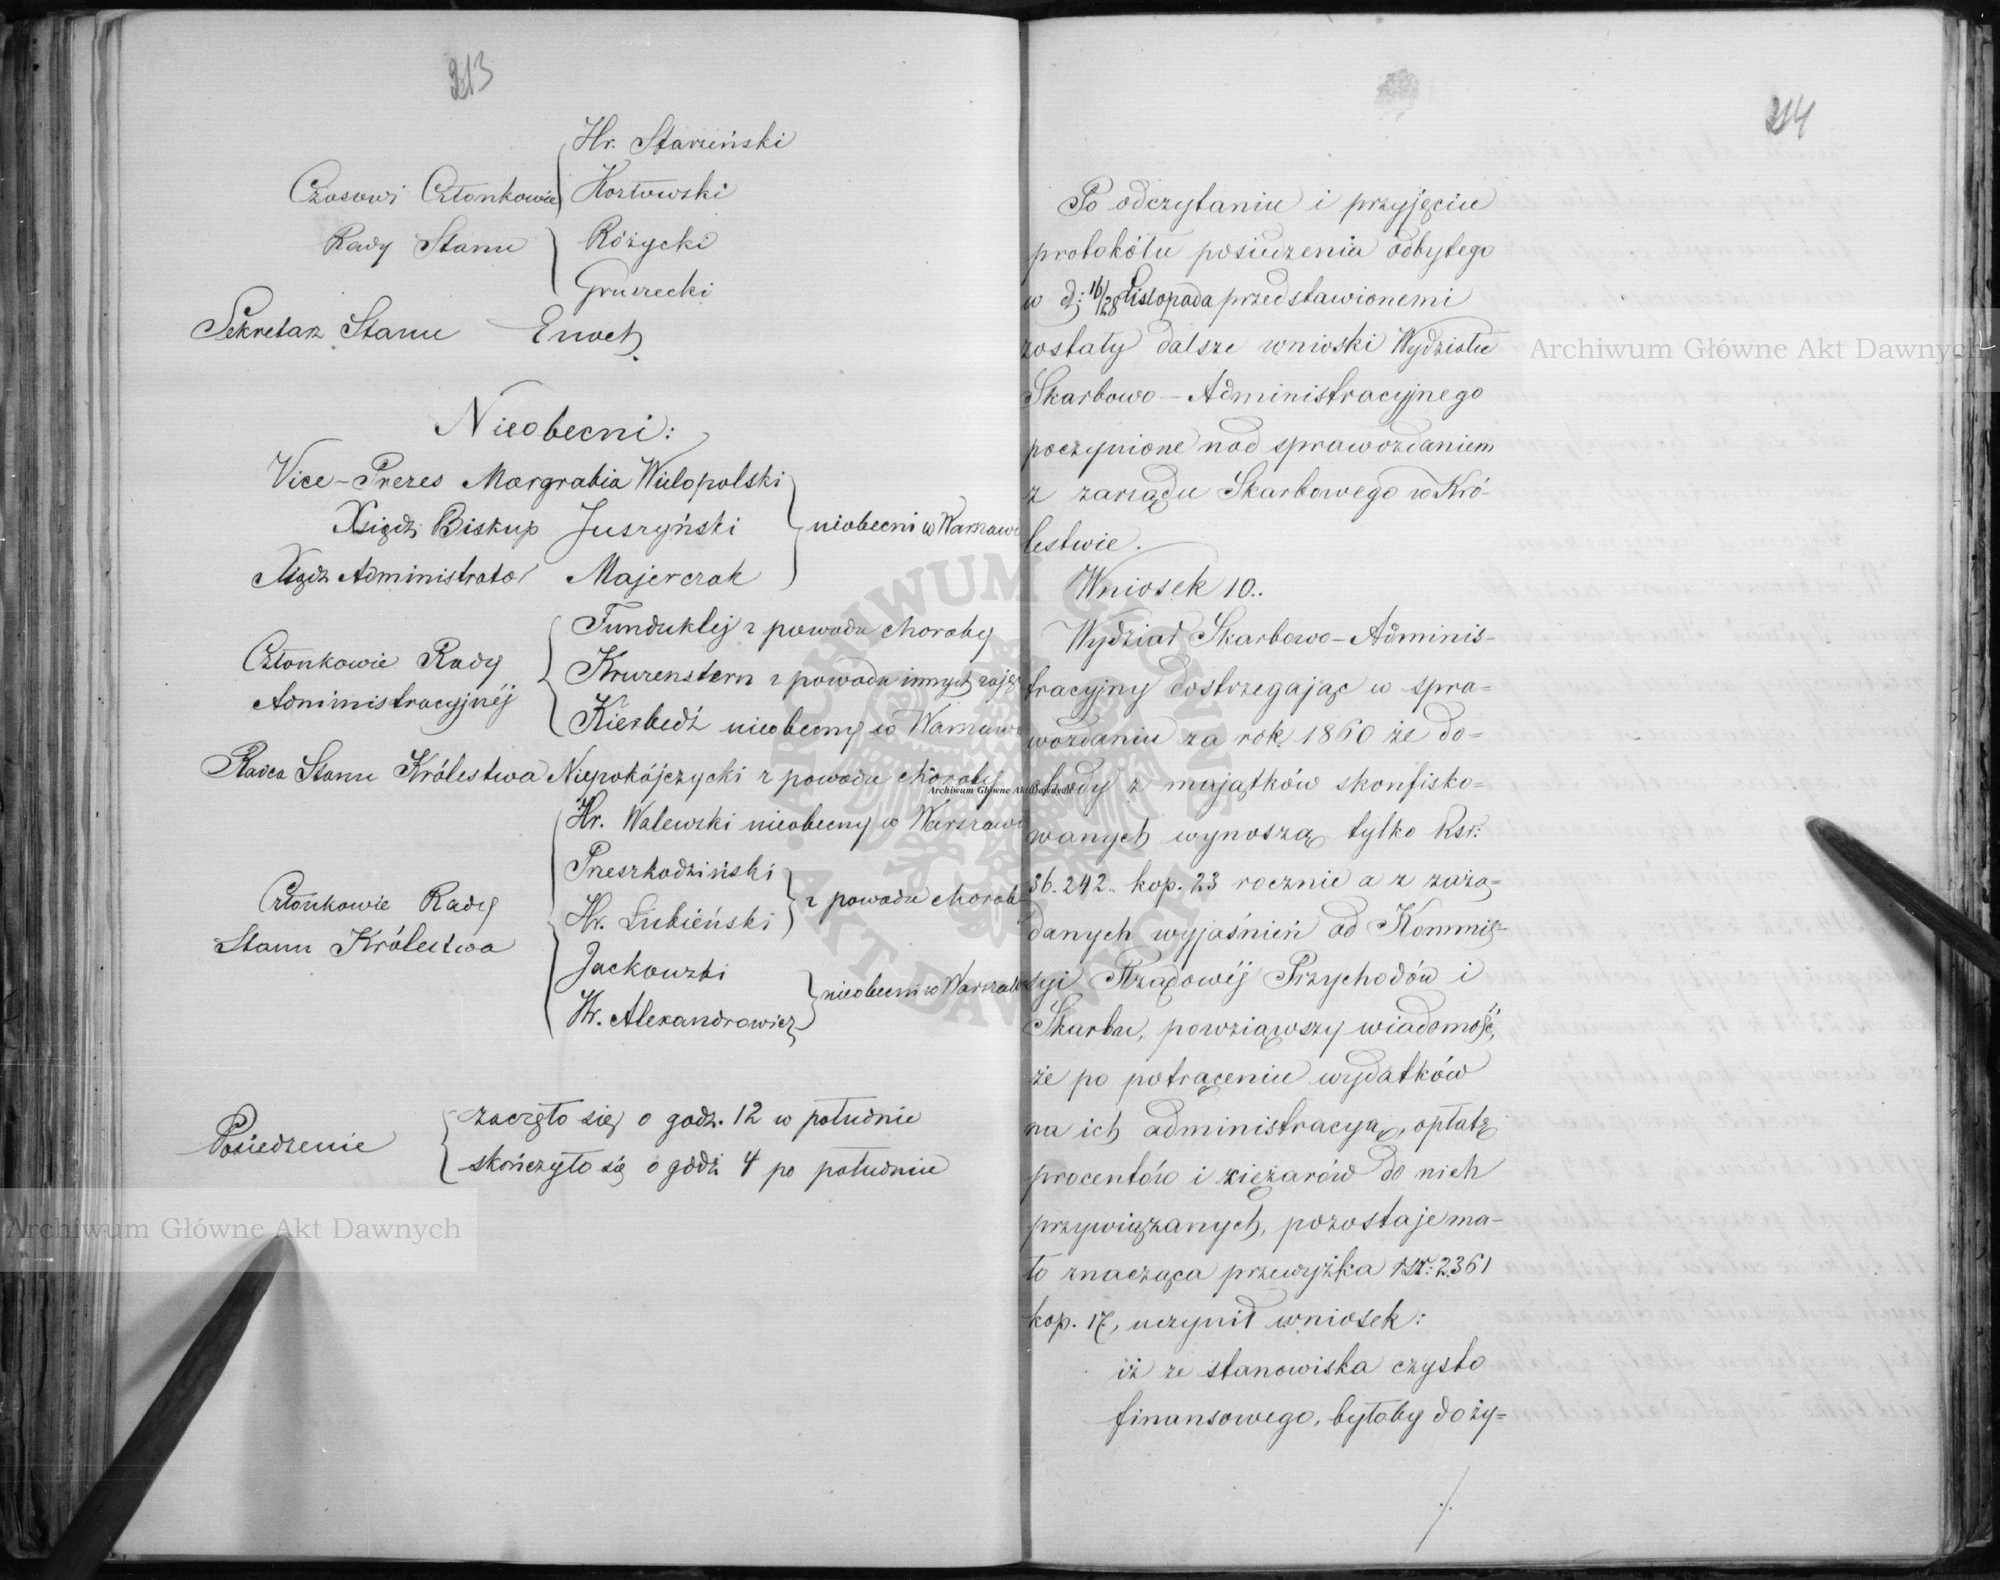 213
Hr. Starzeński
Czasowi Członkowie Kozłowski
Rady Stanu Różycki
Gruszecki
Sekretarz Stanu Enoch
Nieobecni:
Vice-Prezes Margrabia Wielopolski
Xsiądz Biskup Juszyński nieobecni w Warszawi
Xsiądz Administrator Majerczak
Funduklej z powodu choroby
Członkowie Rady Kruzenstern z powodu innych zajęć
Administracyjnéj
Kierbedź nieobecny w Warszawi
Radca Stanu Królestwa Niepokójczycki z powodu choroby
Hr. Walewski nieobecny w Warszawi
Preszkodziński
z powodu chorob
Członkowie Rady Hr. Łubieński
Stanu Królestwa
Jackowski
nieobecni w Warszaw
Hr. Alexandrowicz
Posiedzenie zaczęło się o godz. 12 w południe
skończyło się o godź 4 po południu
214
Po odczytaniu i przyjęciu
protokółu posiedzenia odbytego
w d: 16/28 Listopada przedstawionemi
zostały dalsze wnioski Wydziału
Skarbowo-Administracyjnego
poczynione nad sprawozdaniem
z zarządu Skarbowego w Kró-
lestwie.
Wniosek 10..
Wydział Skarbowo-Adminis-
tracyjny dostrzegając w spra-
wozdaniu za rok 1860 że do-
chody z majątków skonfisko-
wanych wynoszą tylko Rsr:
36.242.. kop. 23 rocznie a z zażą-
danych wyjaśnień od Kommis-
syi Rządowéj Przychodów i
Skarbu, powziąwszy wiadomość,
że po potrąceniu wydatków
na ich administracyą, opłatę
procentów i ciężarów do nich
przywiązanych, pozostaje ma-
ło znacząca przewyżka rsr: 2361
kop. 17, uczynił wniosek:
iż ze stanowiska czysto
finansowego, byłoby do ży-
./.
Archiwum Główne Akt Dawnych
Archiwum Główne Akt Dawnych
Archiwum Główne Akt Dawnych
ARCHIWUM GŁÓWNE AKT DAWNYCH